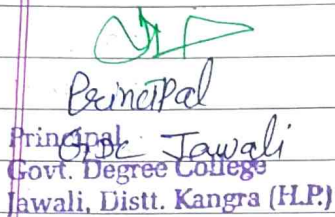 Principal
GDC Jawali
Principal
Govt. Degree College
Jawali, Distt. Kangra (H.P.)